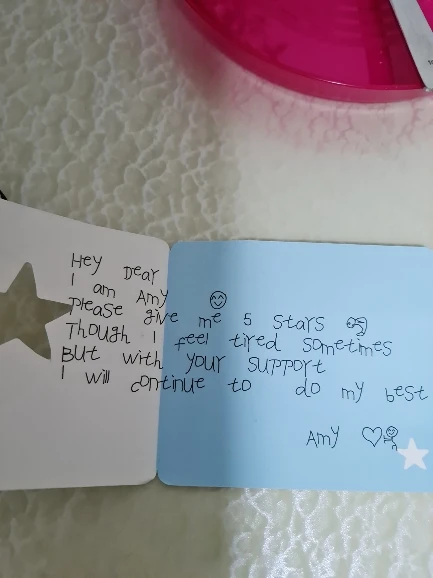 Hey Dear
I am Amy
Please give me 5 stars
Though I feel tired sometimes
But with your support
I will continue to do my best
Amy